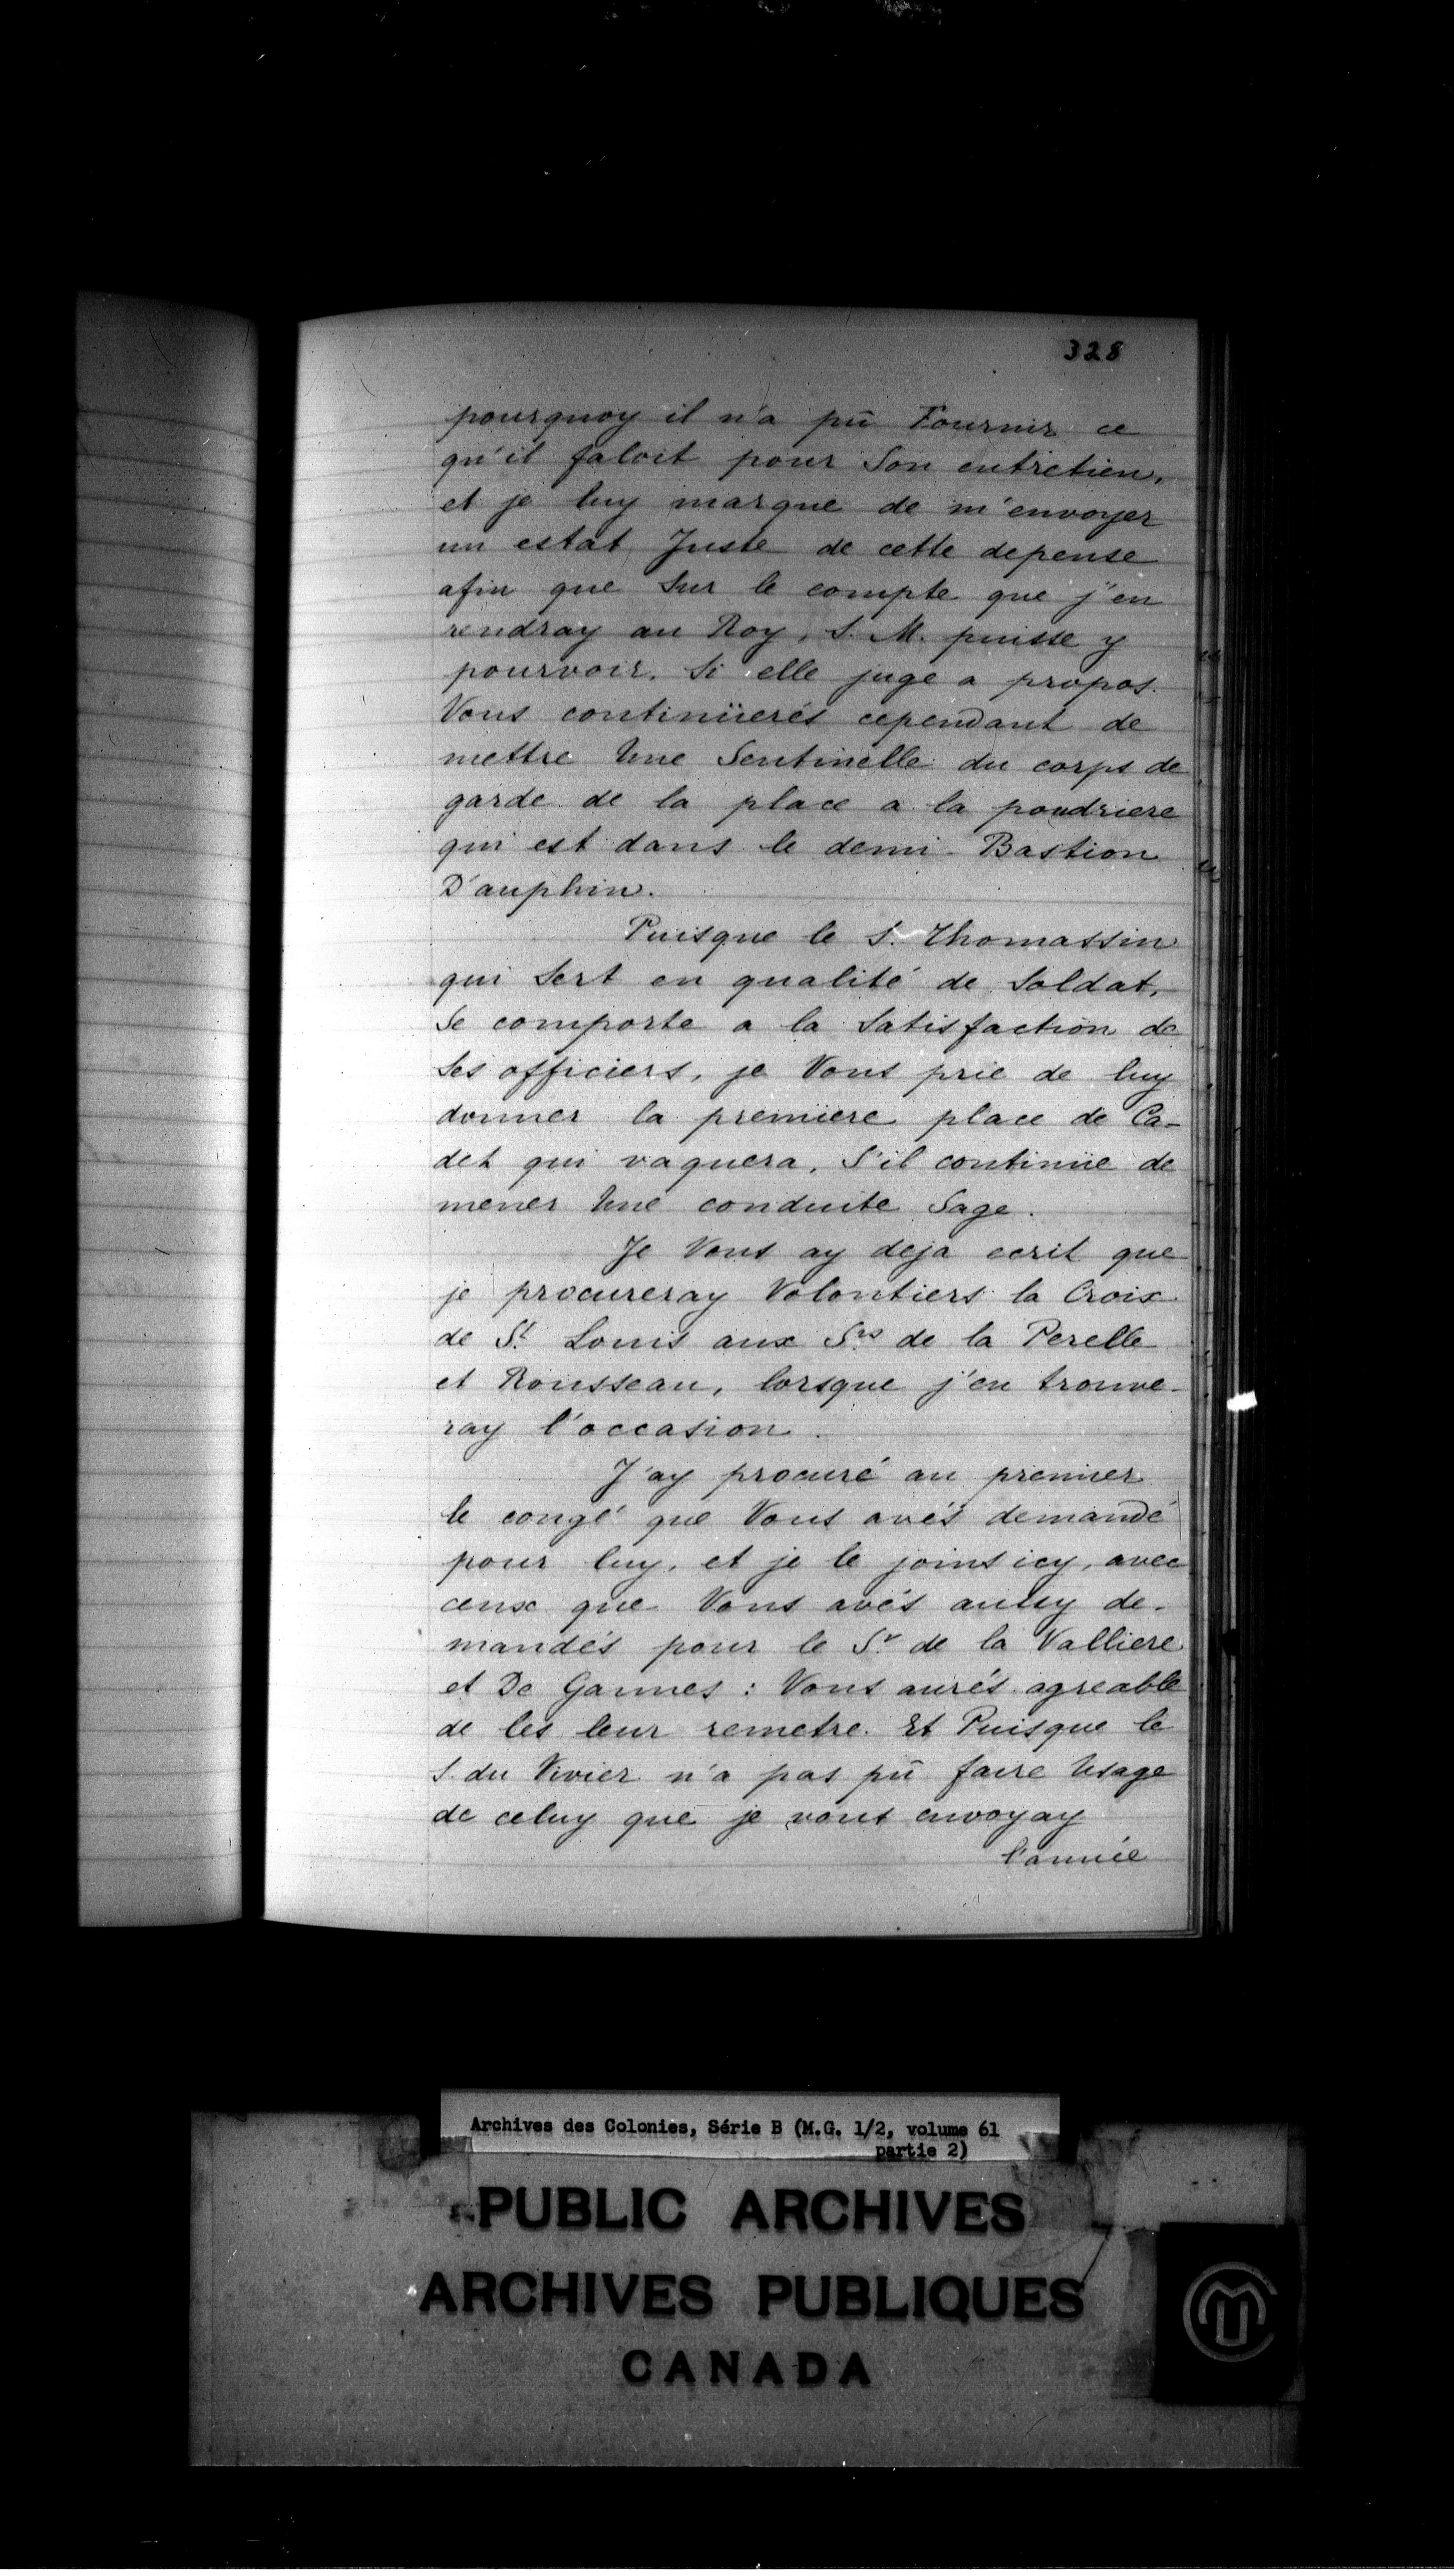 328
pourquoy il n'a pû Fournir ce
qu'il faloit pour Son entretien,
et je luy marque de m'envoyer
un estat Juste de cette depense
afin que Sur le compte que j'en
rendray au Roy, S. M. puisse y
pourvoir, Si elle juge a propos.
Vous continüerés cependant de
mettre Une Sentinelle du corps de
garde de la place a la poudriere
qui est dans le demi-Bastion
D'auphin.
Puisque le S. Thomassin
qui Sert en qualité de Soldat,
Se comporte a la Satisfaction de
Ses officiers, je Vous prie de luy
donner la premiere place de Ca-
det qui vaquera, S'il continüe de
mener Une conduite Sage.
Je Vous ay deja ecrit que
je procureray Volontiers la Croix
de St. Louis aux Srs de la Perelle
et Rousseau, lorsque j'en trouve-
ray l'occasion.
J'ay procuré au premier
le congé que Vous avés demandé
pour luy, et je le joins icy, avec
ceux que Vous avés aussy de-
mandés pour le Sr. de la Valliere
et De Gannes : Vous aurés agreable
de les leur remetre. Et Puisque le
S. du Vivier n'a pas pû faire Usage
de celuy que je vous envoyay
l'année
Archives des Colonies, Série B (M.G. 1/2, volume 61
partie 2)
PUBLIC ARCHIVES
ARCHIVES PUBLIQUES
CANADA